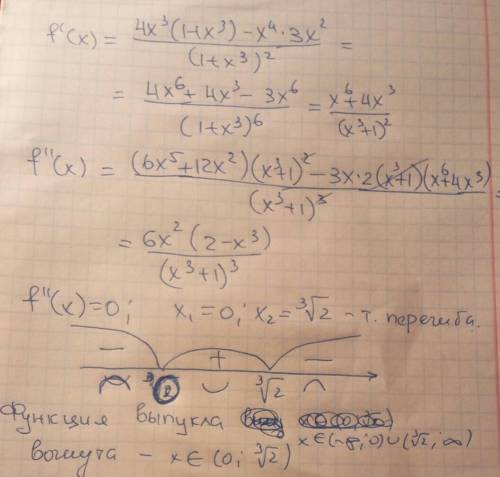 f'(x) = (4x³(1+x³) - x⁴·3x²)/(1+x³)² =
= (4x⁶ + 4x³ - 3x⁶)/(1+x³)⁶ = (x⁶ + 4x³)/(x³+1)²
f''(x) = ((6x⁵ + 12x²)(x³+1)² - 3x·2(x³+1)(x⁶+4x³))/(x³+1)³ =
= 6x²(2-x³)/(x³+1)³
f''(x)=0; x₁=0; x₂=∛2 - т. перегиба.
- + -
∛2
Функция выпукла x∈(-∞;0)∪(∛2;∞)
вогнута - x∈(0;∛2)